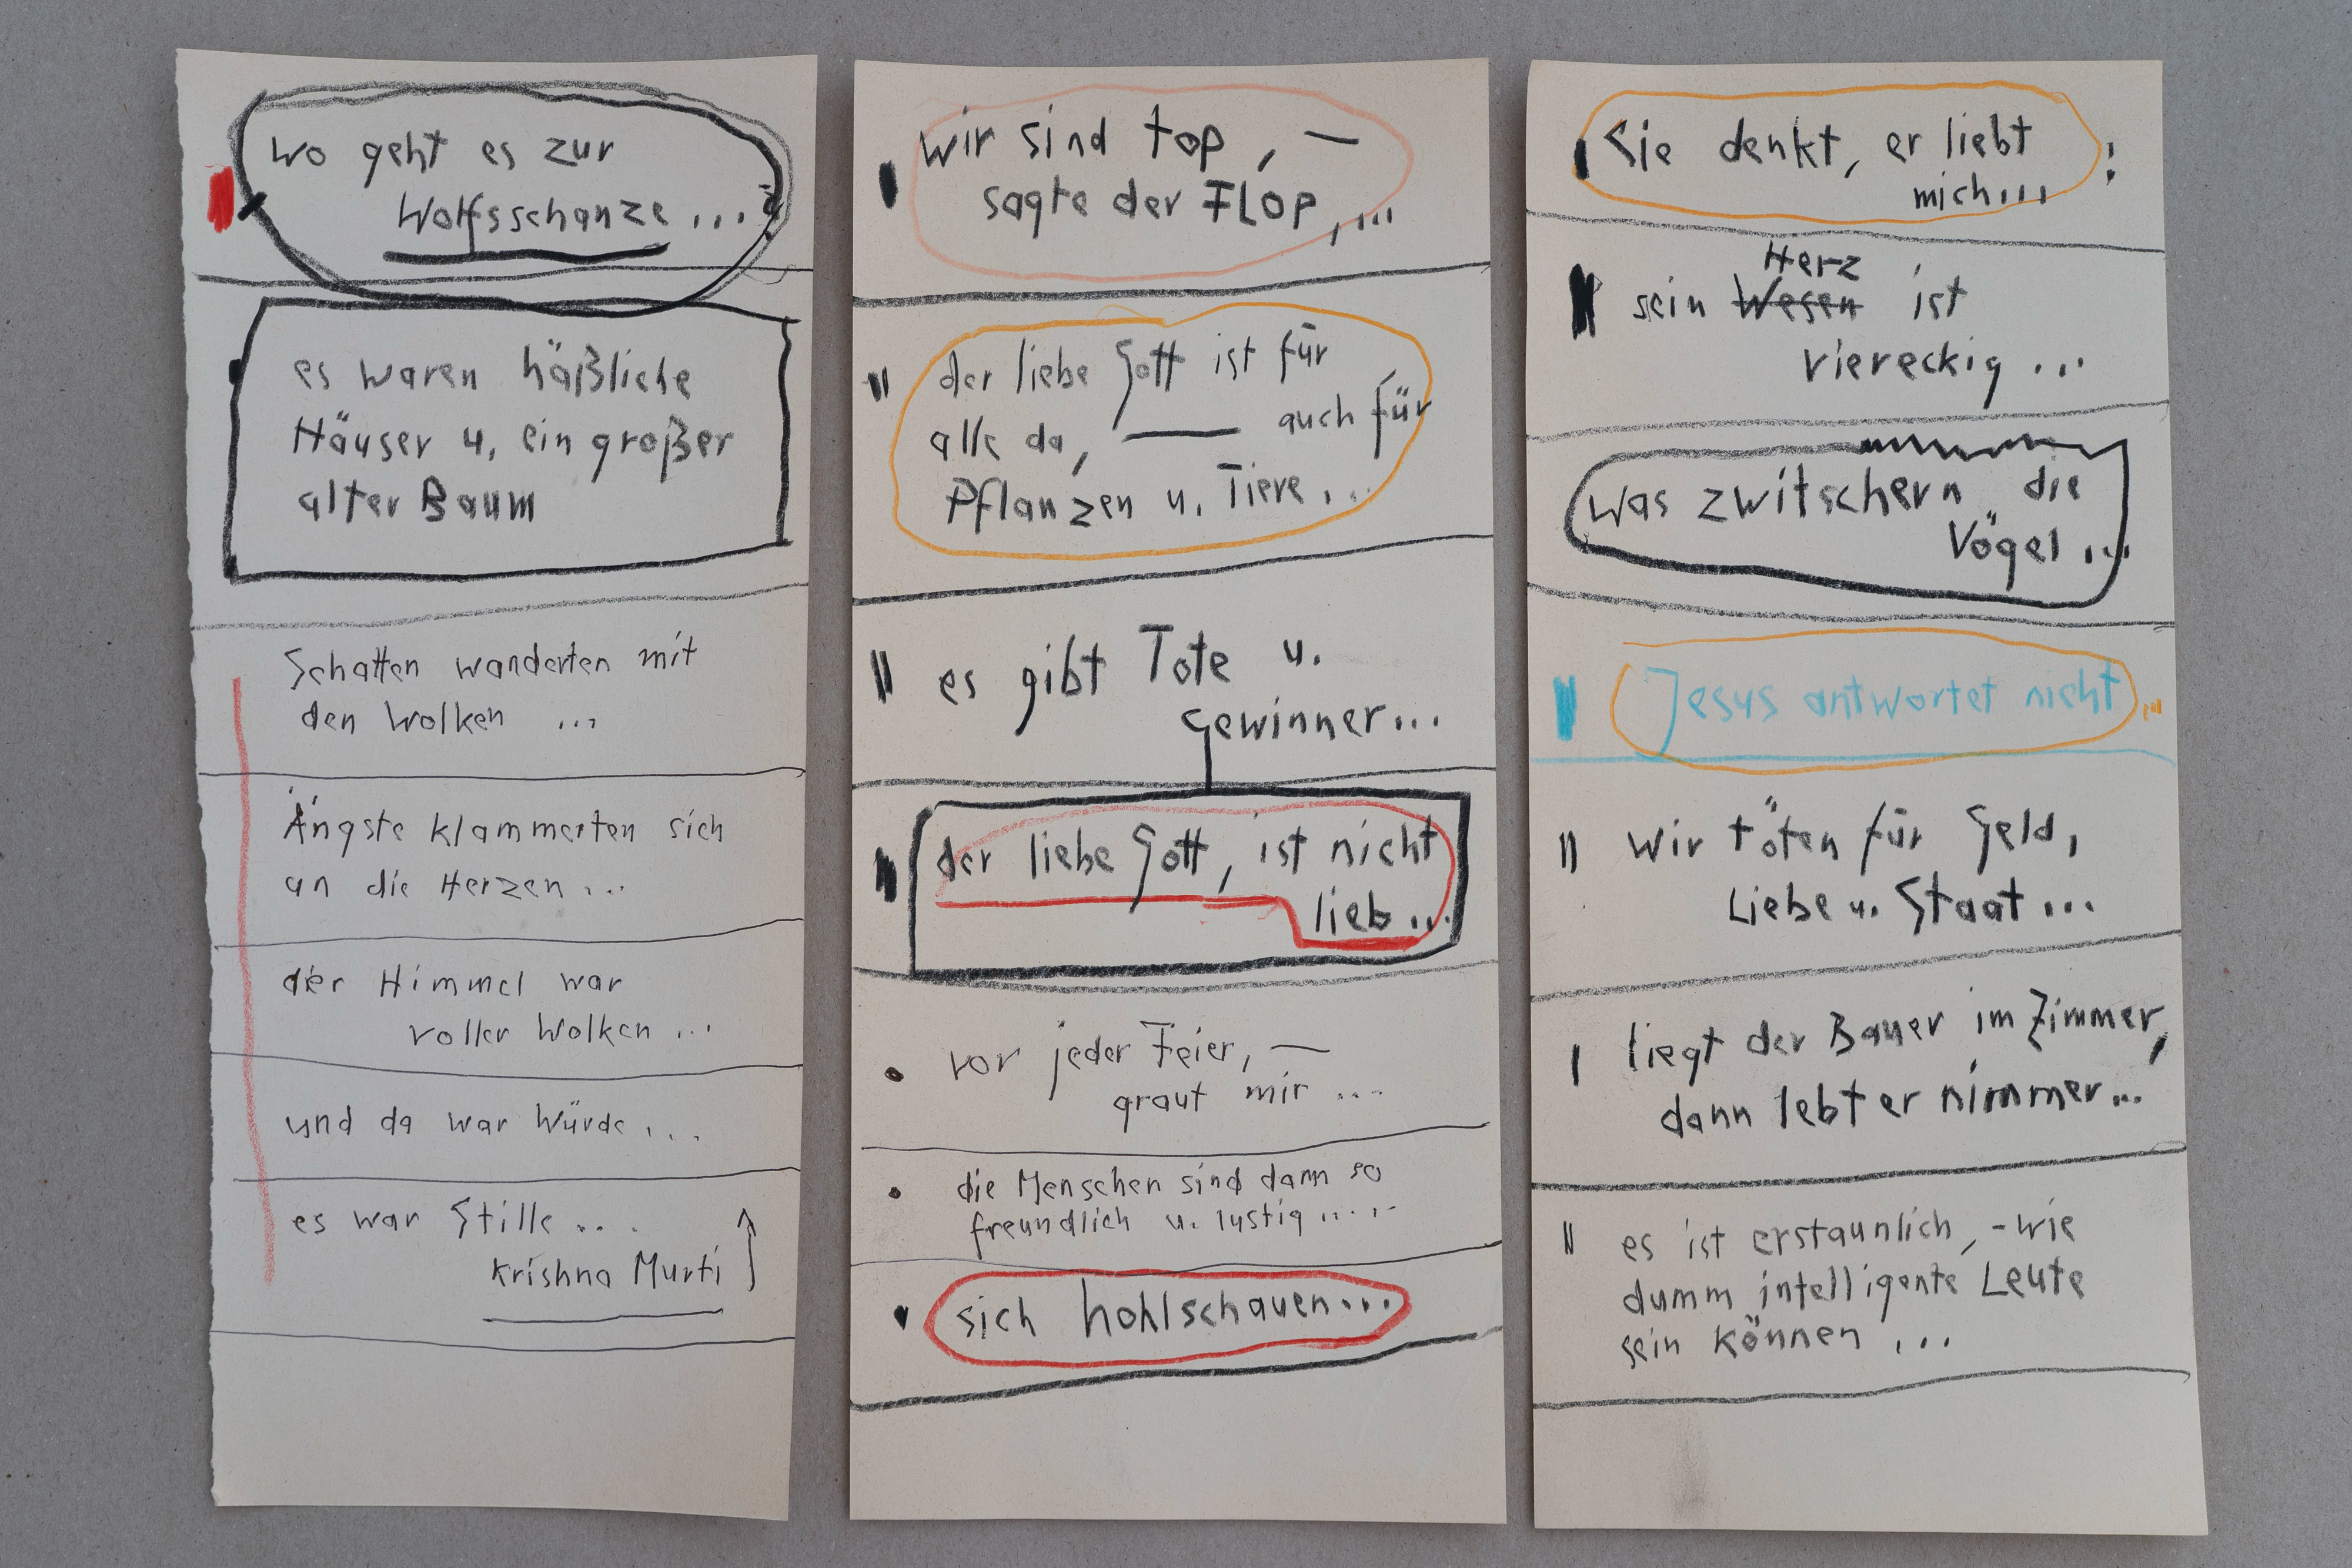 wo geht es zur
Wolfsschanze ...?
es waren häßliche
Häuser u. ein großer
alter Baum
Schatten wanderten mit
den Wolken ...
Ängste klammerten sich
an die Herzen ...
der Himmel war
voller Wolken ...
und da war Würde ...
es war Stille ...
Krishna Murti
wir sind top, —
sagte der FLOP, ...
der liebe Gott ist für
alle da, — auch für
Pflanzen u. Tiere ...
es gibt Tote u.
gewinner...
der liebe Gott, ist nicht
lieb ...
vor jeder Feier, —
graut mir ...
die Menschen sind dann so
freundlich u. lustig .....
sich hohlschauen...
Sie denkt, er liebt
mich... !
Herz
sein Wesen ist
viereckig ...
was zwitschern die
Vögel ...
Jesus antwortet nicht ...
Wir töten für Geld,
Liebe u. Staat ...
liegt der Bauer im Zimmer,
dann lebt er nimmer...
es ist erstaunlich, - wie
dumm intelligente Leute
sein können ...